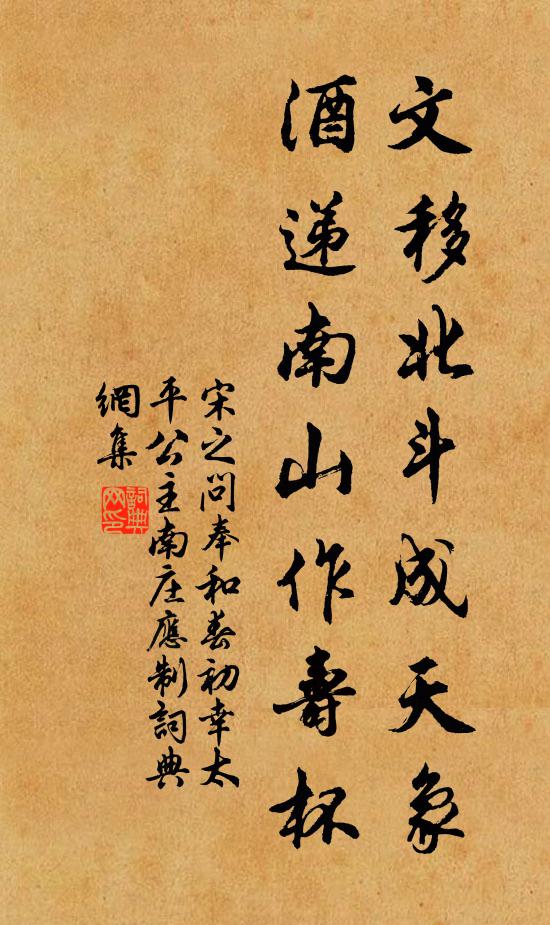 文移北斗成天象
酒递南山作壽杯
宋之问奉和春初幸太
平公主南庄應制詞典
網集
詞典
网印